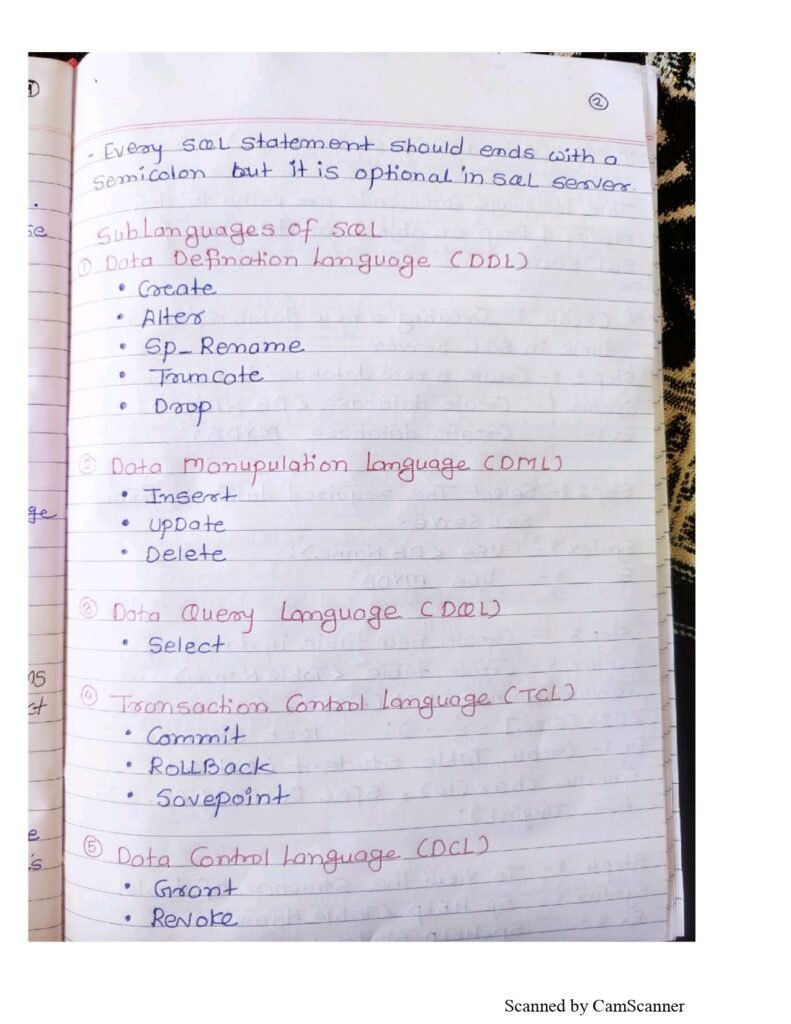 ②
- Every SQL Statement should ends with a
semicolon but it is optional in SQL server.
Sublanguages of SQL
① Data Defination Language (DDL)
• Create
• Alter
• Sp_Rename
• Truncate
• Drop
② Data Manupulation Language (DML)
• Insert
• UpDate
• Delete
③ Data Query Language (DQL)
• Select
④ Transaction Control Language (TCL)
• Commit
• RollBack
• Savepoint
⑤ Data Control Language (DCL)
• Grant
• Revoke
Scanned by CamScanner